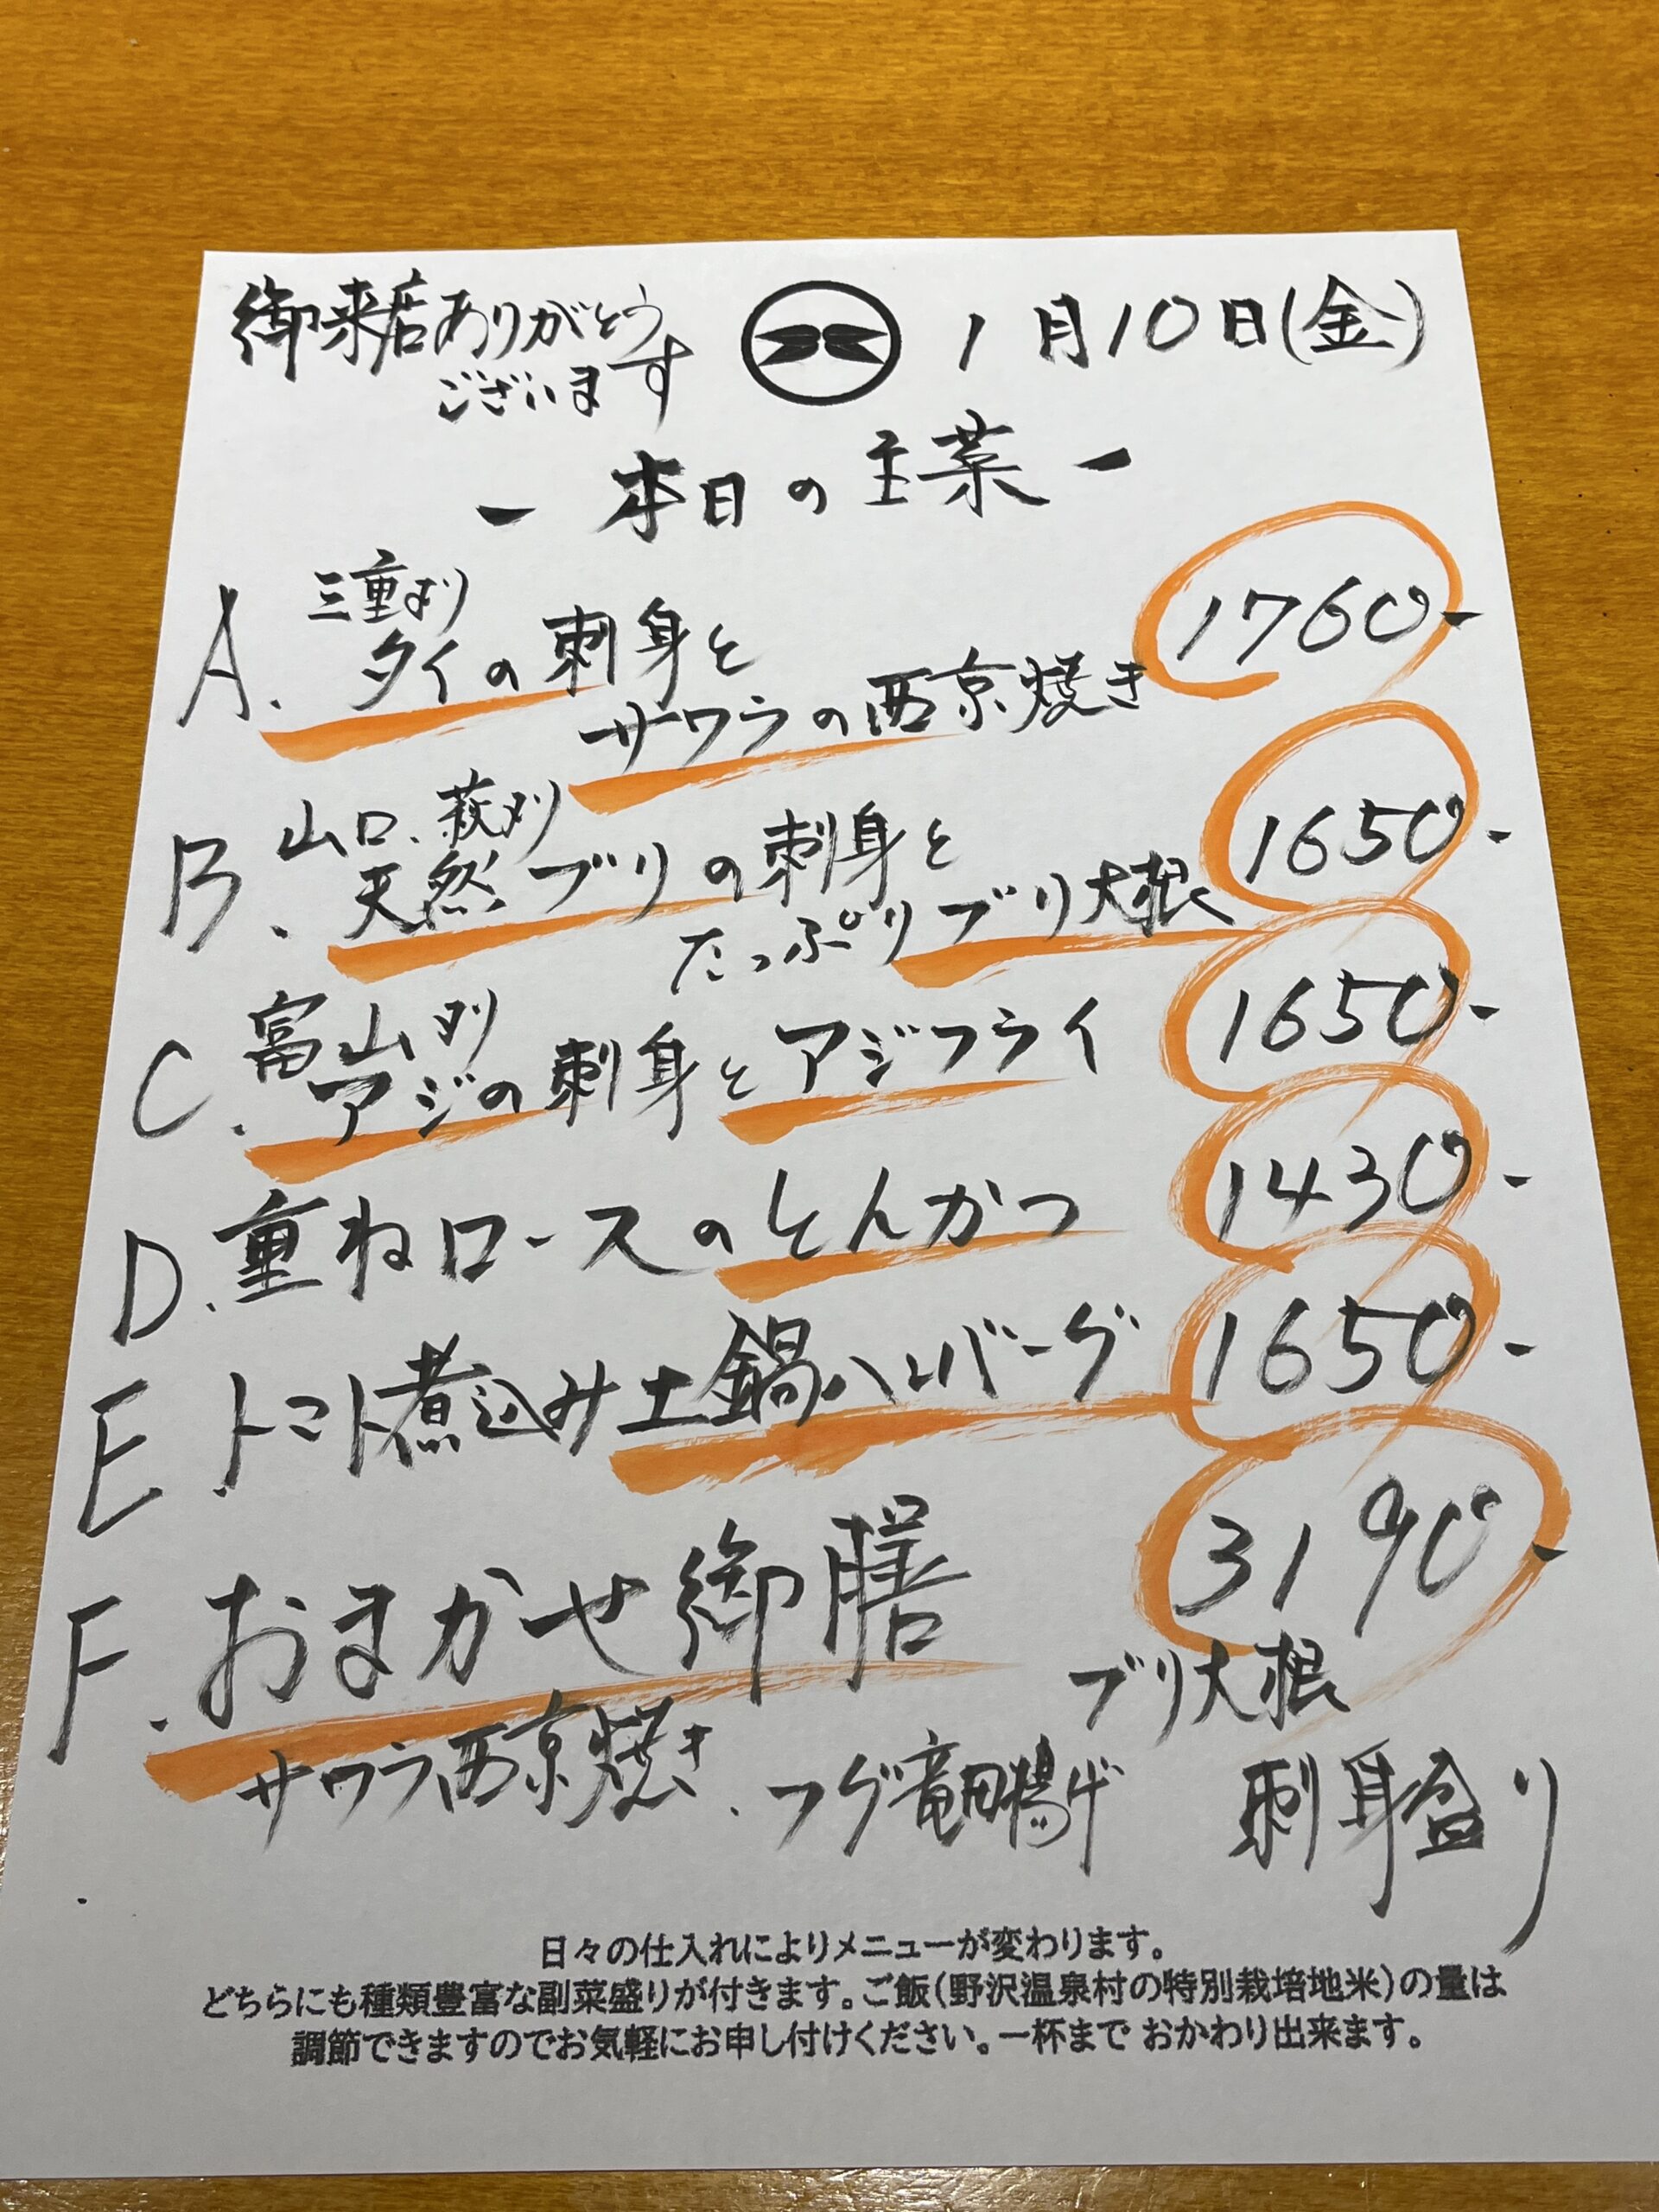 御来店ありがとう
ございます
1月10日(金)
- 本日の主菜 -
A. 三重より
タイの刺身と
サワラの西京焼き
1760-
B. 山口、萩より
天然ブリの刺身と
たっぷりブリ大根
1650-
C. 富山より
アジの刺身とアジフライ
1650-
D. 重ねロースのとんかつ
1430-
E. トマト煮込み土鍋ハンバーグ
1650-
F. おまかせ御膳
3190-
ブリ大根
サワラ西京焼き、フグ竜田揚げ 刺身盛り
日々の仕入れによりメニューが変わります。
どちらにも種類豊富な副菜盛りが付きます。ご飯(野沢温泉村の特別栽培地米)の量は
調節できますのでお気軽にお申し付けください。一杯まで おかわり出来ます。